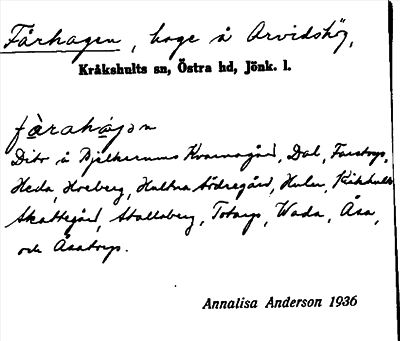 Fårhagen, hage å Arvidshög,
Kråkshults sn, Östra hd, Jönk. l.
fàrahágən
Dito å Bjälkerums Kvarnagård, Dal, Farstorp,
Heda, Horeberg, Hultna Södregård, Hulu, Kråkshult
Skattegård, Stallaberg, Totarp, Wada, Åsa,
och Åsatorp.
Annalisa Anderson 1936